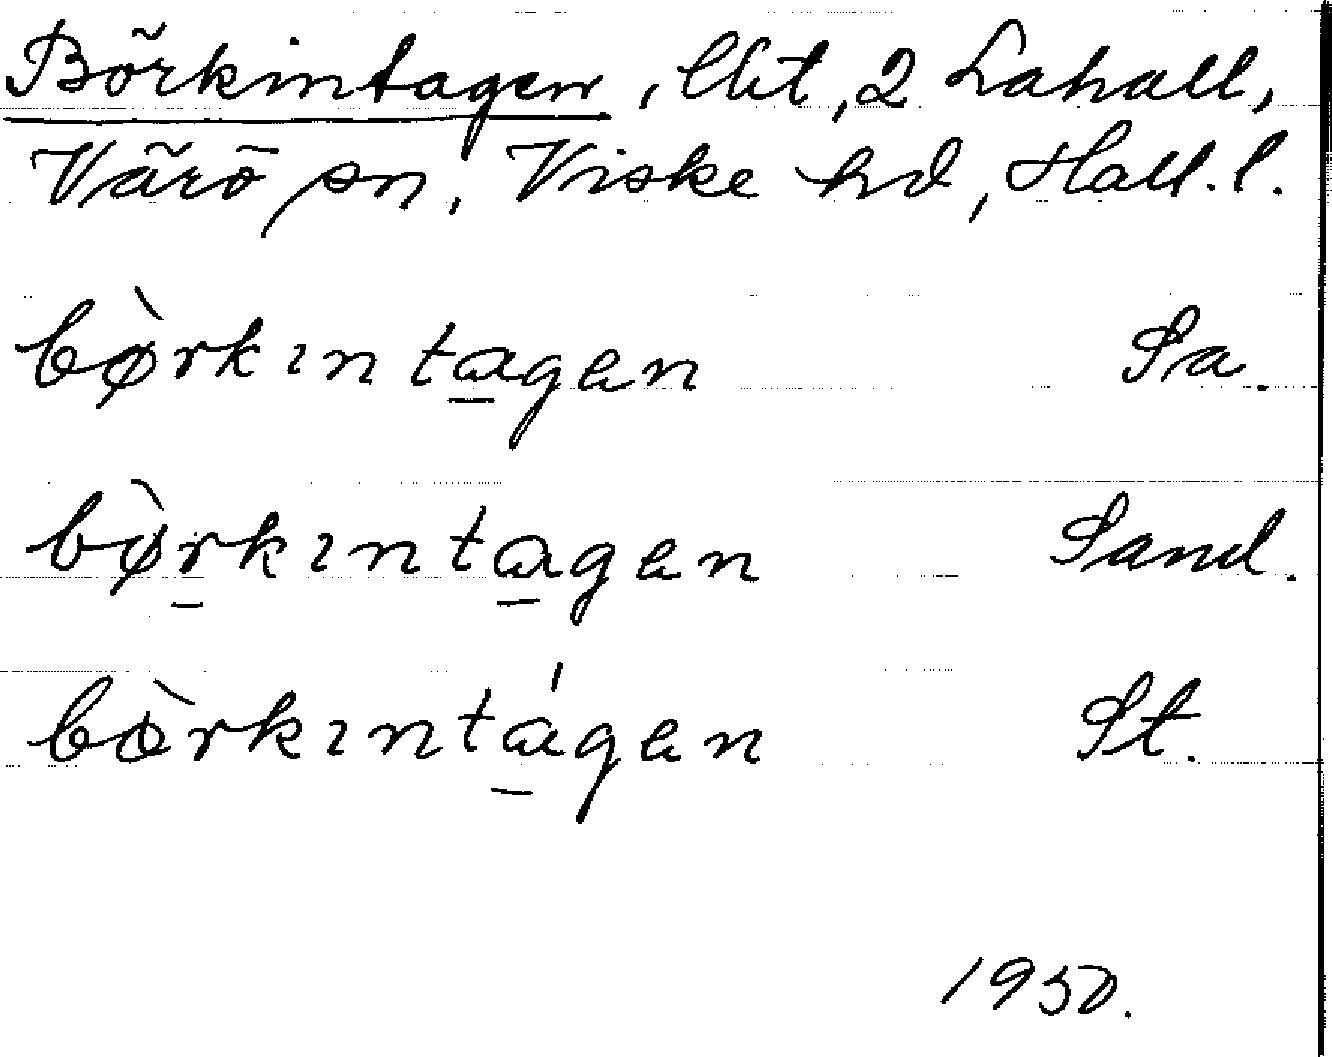 Börkintagen, Utr, 2 Lahall,
Värö sn, Viske hd, Hall. l.
bø̀rkınta̱gen Sa.
bø̀ṟkınta̱gen Sand.
bòrkıntá̱gen St.
1950.